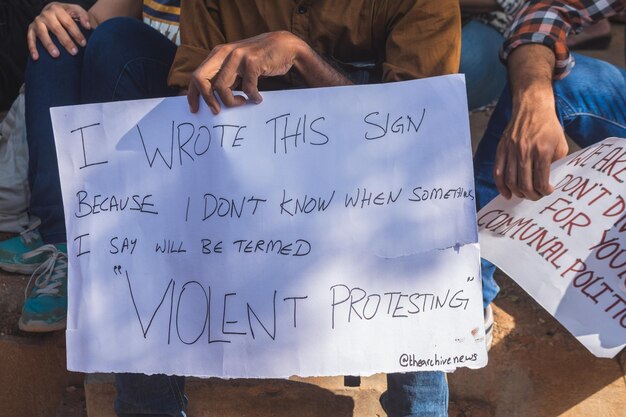 I WROTE THIS SIGN
BECAUSE I DONT KNOW WHEN SOMETHING
I SAY WILL BE TERMED
"VIOLENT PROTESTING"
@thearchivenews
WE ARE
DON'T
FOR YOUR
COMMUNAL POLITIC